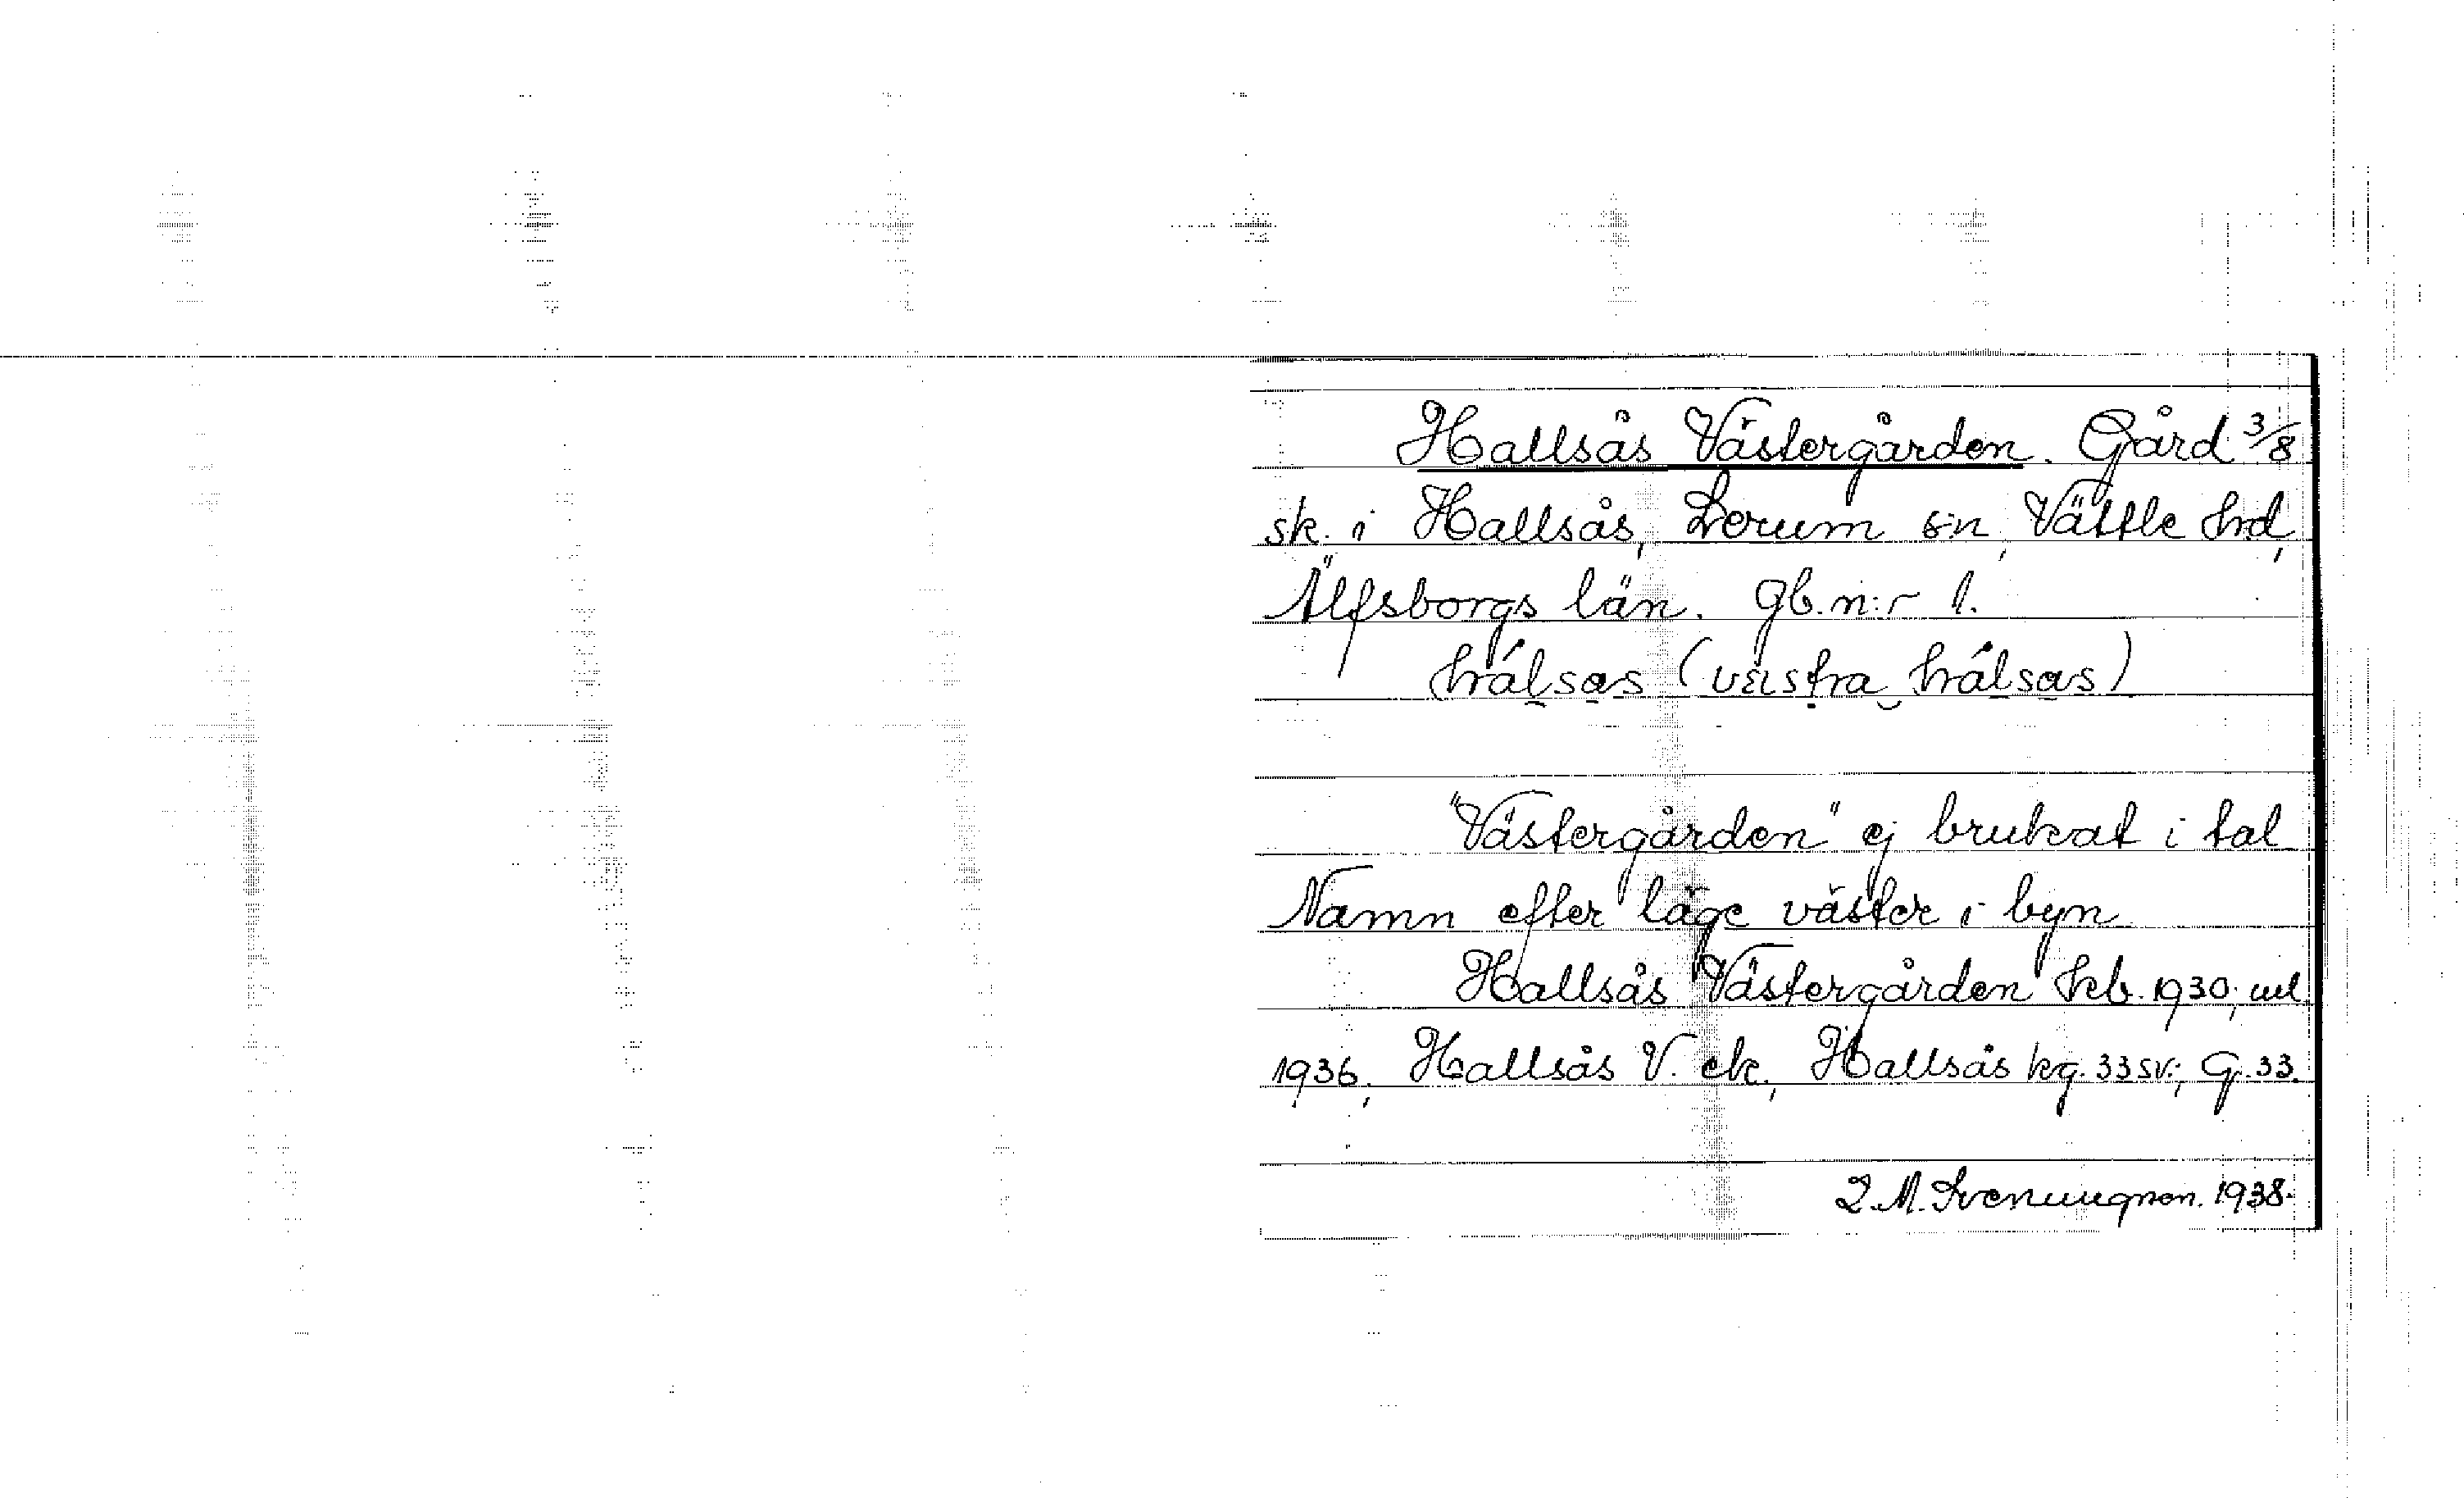 Hallsås Västergården. Gård 3/8
sk. i Hallsås, Lerum s:n, Vättle hrd,
Älfsborgs län. Gb. n:r 1.
hálsas (västra hálsas)
"Västergården" ej brukat i tal
Namn efter läge väster i byn
Hallsås Västergården Skb. 1930; ml
1936, Hallsås V. ek, Hallsås kg. 33 sv.; G. 33.
2. M. Svenungnon. 1938.